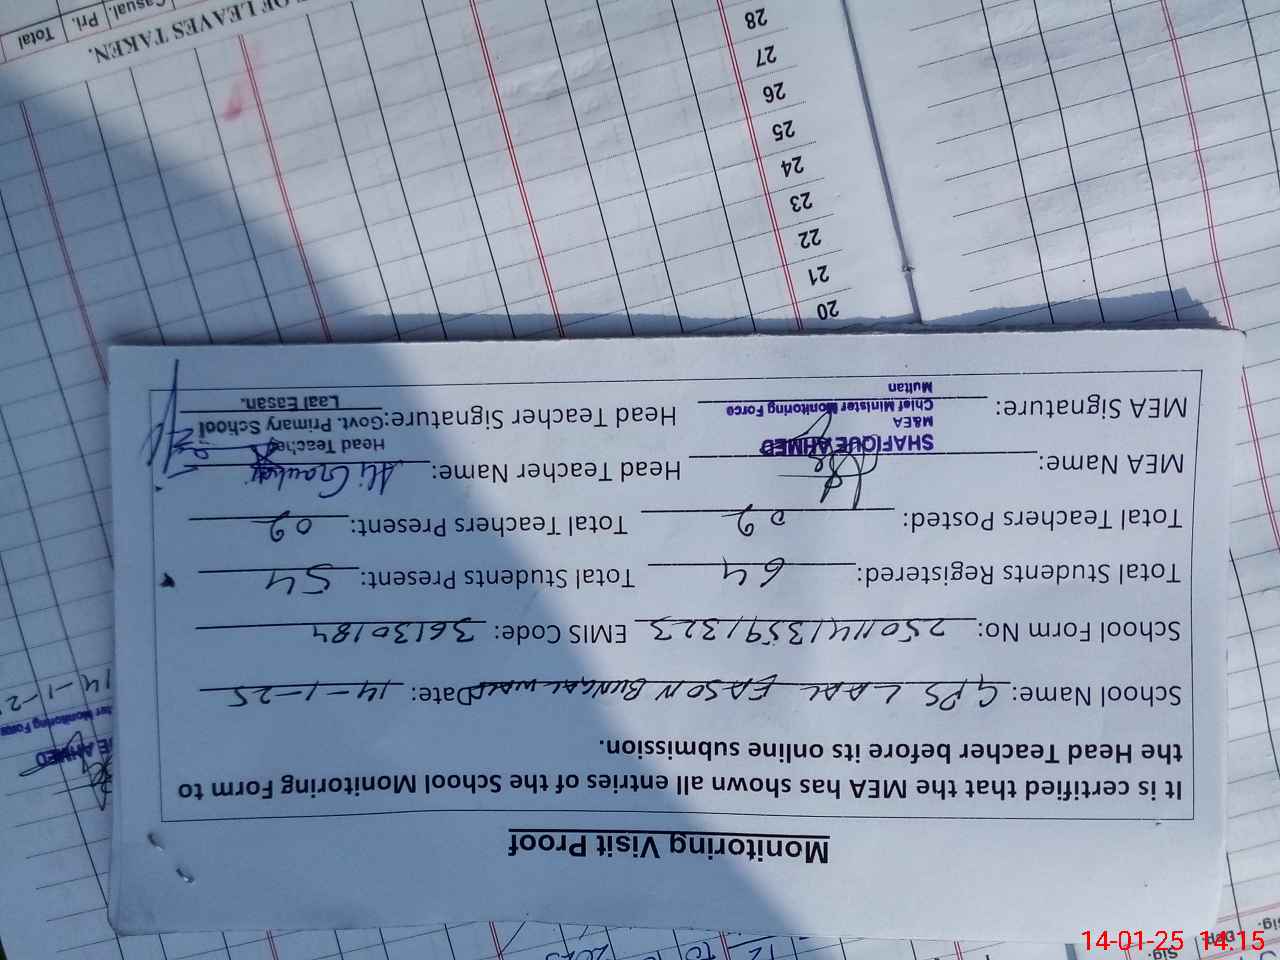 Monitoring Visit Proof
It is certified that the MEA has shown all entries of the School Monitoring Form to
the Head Teacher before its online submission.
School Name: GPS LAAL EASON BUNGALWALA Date: 14-1-25
School Form No: 25011413591323 EMIS Code: 36130184
Total Students Registered: 64 Total Students Present: 54
Total Teachers Posted: 02 Total Teachers Present: 02
MEA Name: Head Teacher Name: Ali Gauhar
SHAFIQUE AHMED
M&EA
Chief Minister Monitoring Force
Multan
Head Teacher
Govt. Primary School
Laal Easan.
MEA Signature: Head Teacher Signature:
20
21
22
23
24
25
26
27
28
OF LEAVES TAKEN.
Casual.
Pri.
Total
14-1-2
E AHMED
ter Monitoring Force
Sig.
Sig.
14-01-25 14:15